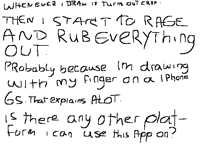 WHENEVER I DRAW IT TURN OUT CRAP.
THEN I START TO RAGE
AND RUB EVERYTHING
OUT.
PRobably because Im drawing
with my finger on a IPhone
6s. That explains ALOT.
is there any other plat-
form i can use this App on?